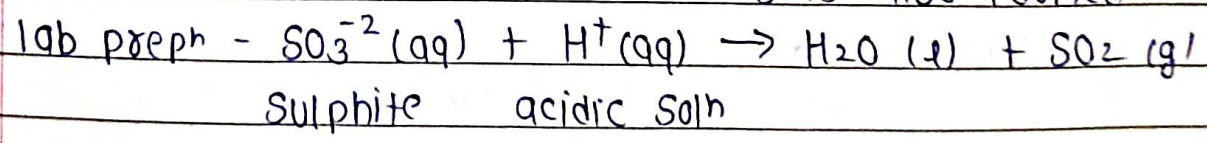 lab prepn - SO₃⁻² (aq) + H⁺ (aq) → H₂O (l) + SO₂ (g)
Sulphite acidic soln